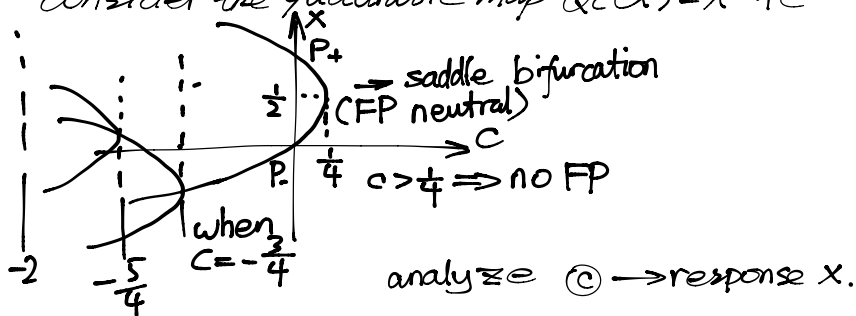 consider the quadratic map Qc(x) = x² + c
x
P+
1/2
→ saddle bifurcation
(FP neutral)
C
P-
1/4
c > 1/4 ⟹ no FP
when
c = -3/4
-2
-5/4
analyze ⓒ → response x.